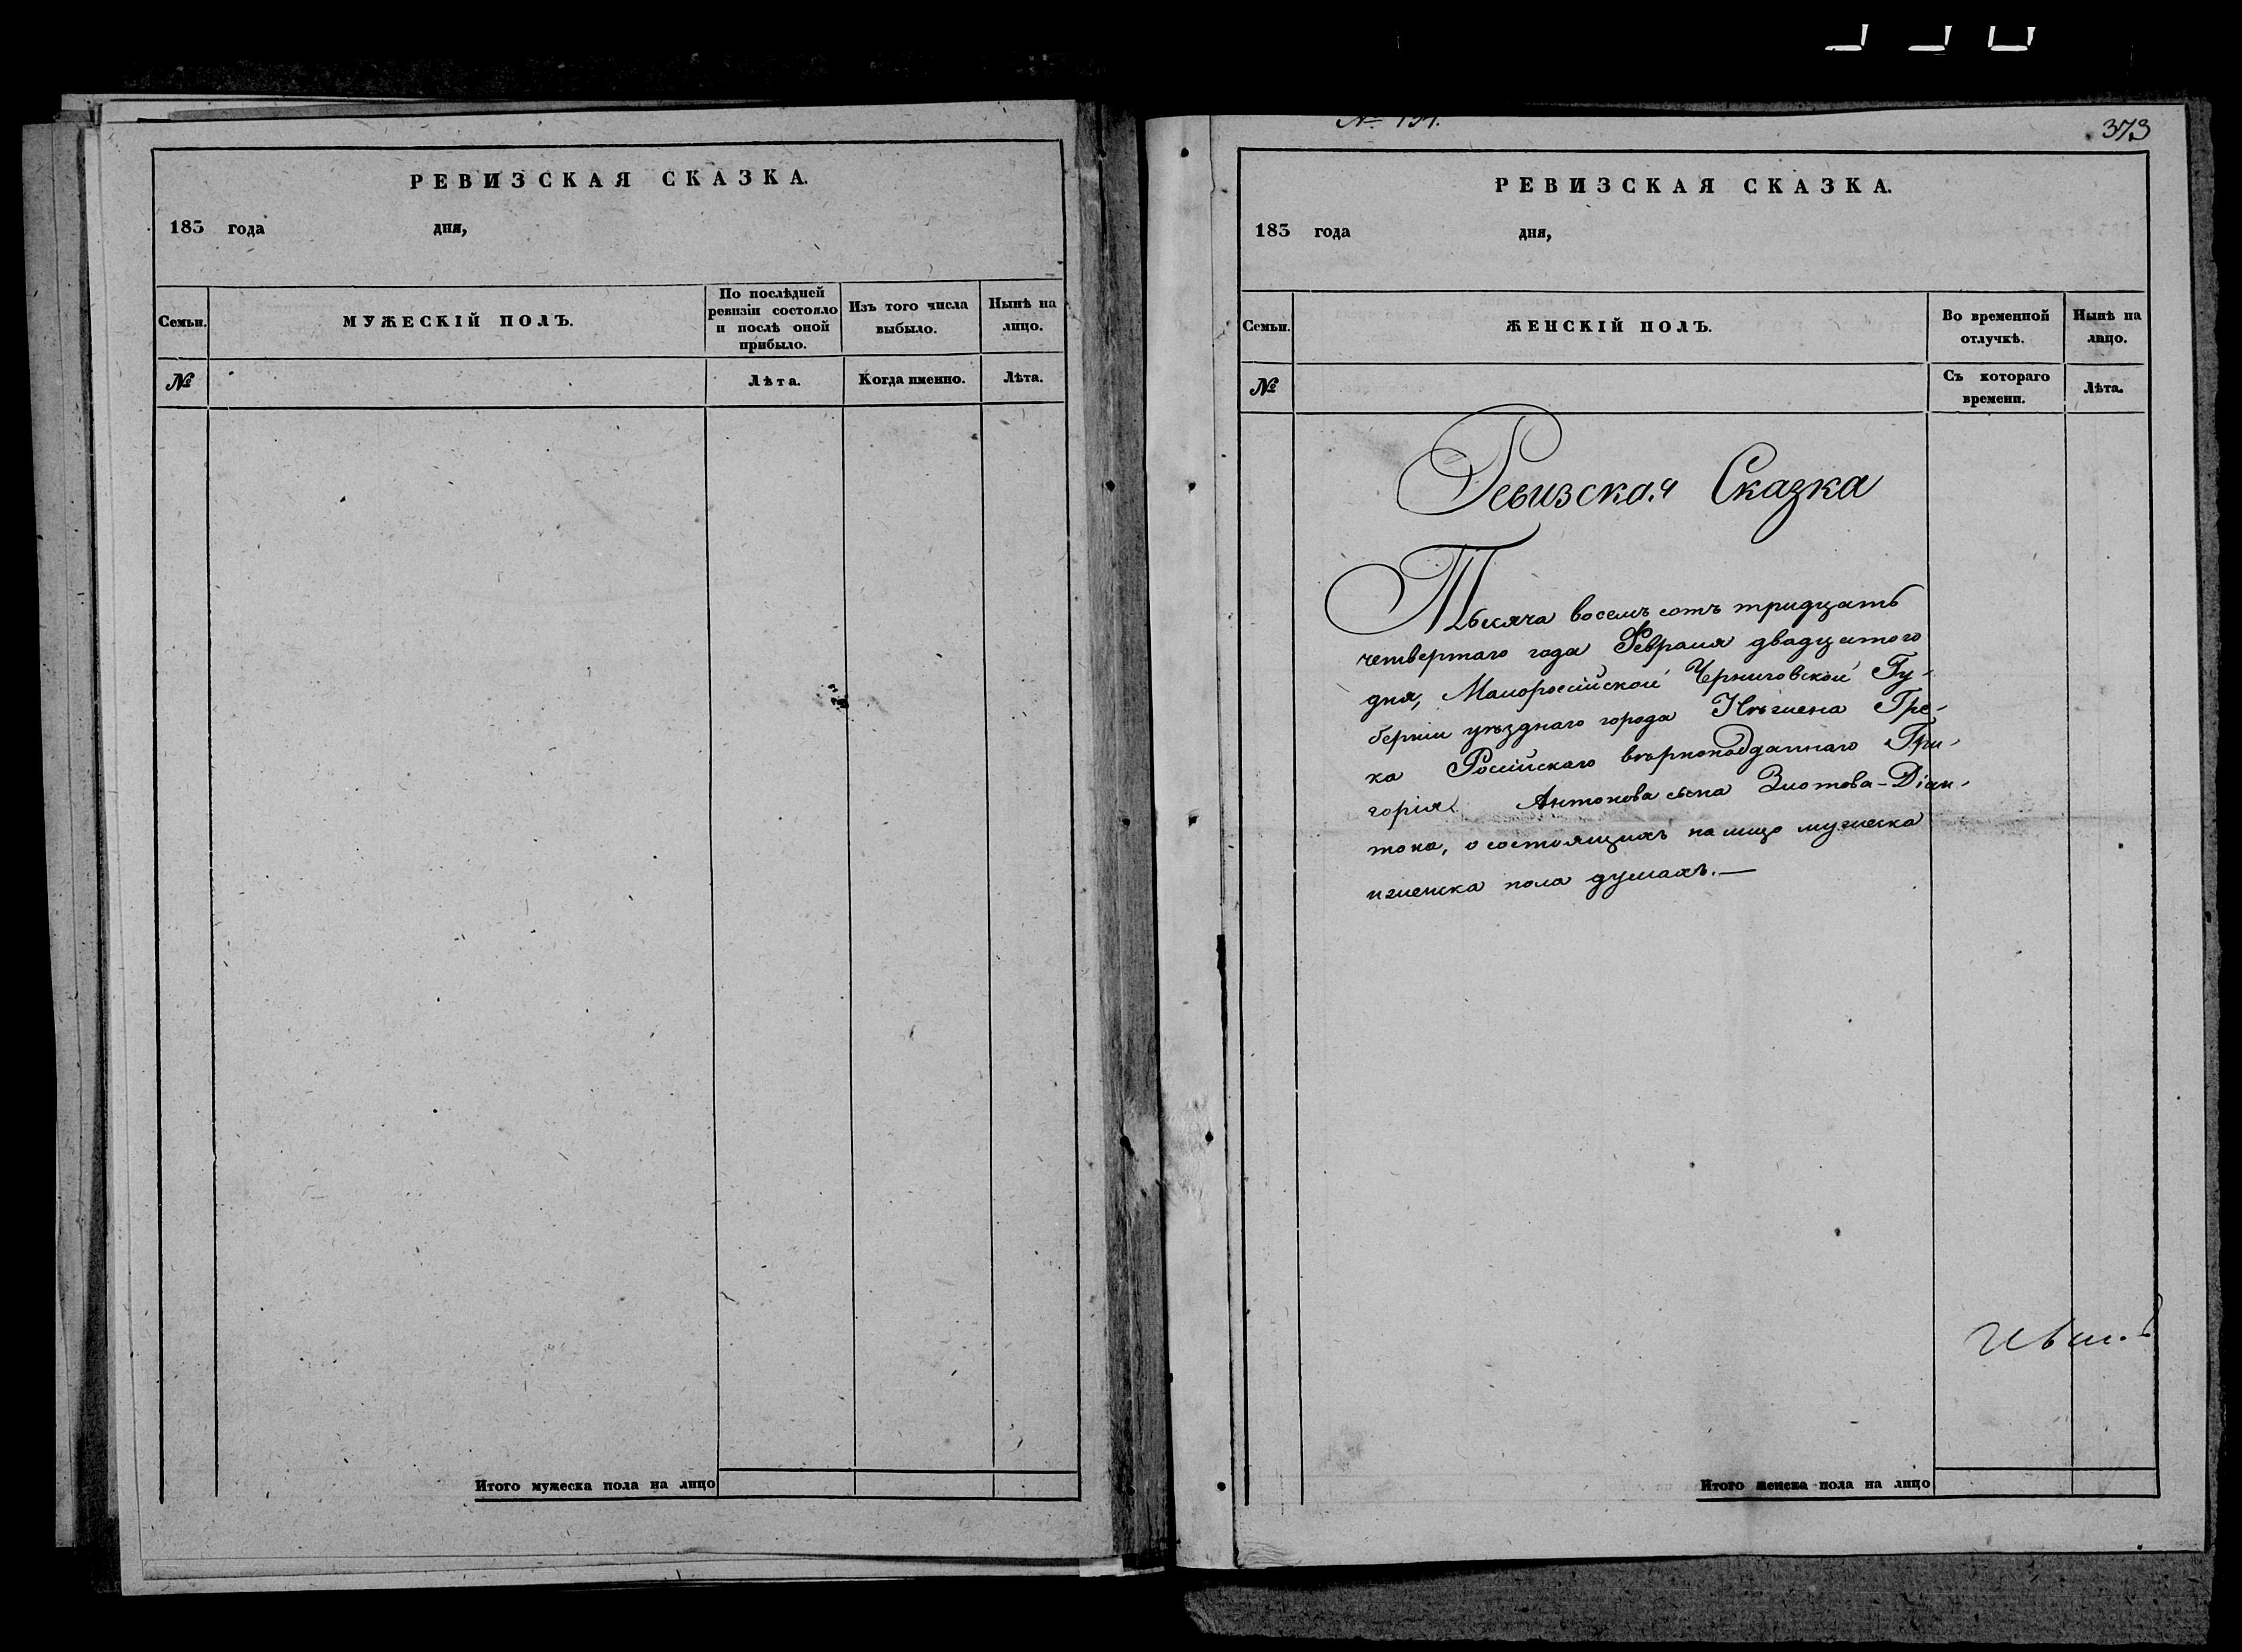 РЕВИЗСКАЯ СКАЗКА.
183 года дня,
Семьи.
МУЖЕСКІЙ ПОЛЪ.
По послѣдней
ревизіи состояло
и послѣ оной
прибыло.
Изъ того числа
выбыло.
Нынѣ на
лицо.
№
Лѣта.
Когда именно.
Лѣта.
Итого мужеска пола на лицо
373
РЕВИЗСКАЯ СКАЗКА.
183 года дня,
Семьи.
ЖЕНСКІЙ ПОЛЪ.
Во временной
отлучкѣ.
Нынѣ на
лицо.
№
Съ котораго
времени.
Лѣта.
Ревизская Сказка
Тысяча восемъ сотъ тридцать
четвертаго года Февраля двадцатого
дня, Малороссійской Черниговской Гу-
берніи уѣзднаго города Нѣжена Гре-
ка Россійскаго вѣрноподданнаго Гри-
горія Антонова сына Злотова-Діан-
тока, о состоящихъ на лицо мужеска
и женска пола душахъ.—
Итого женска пола на лицо